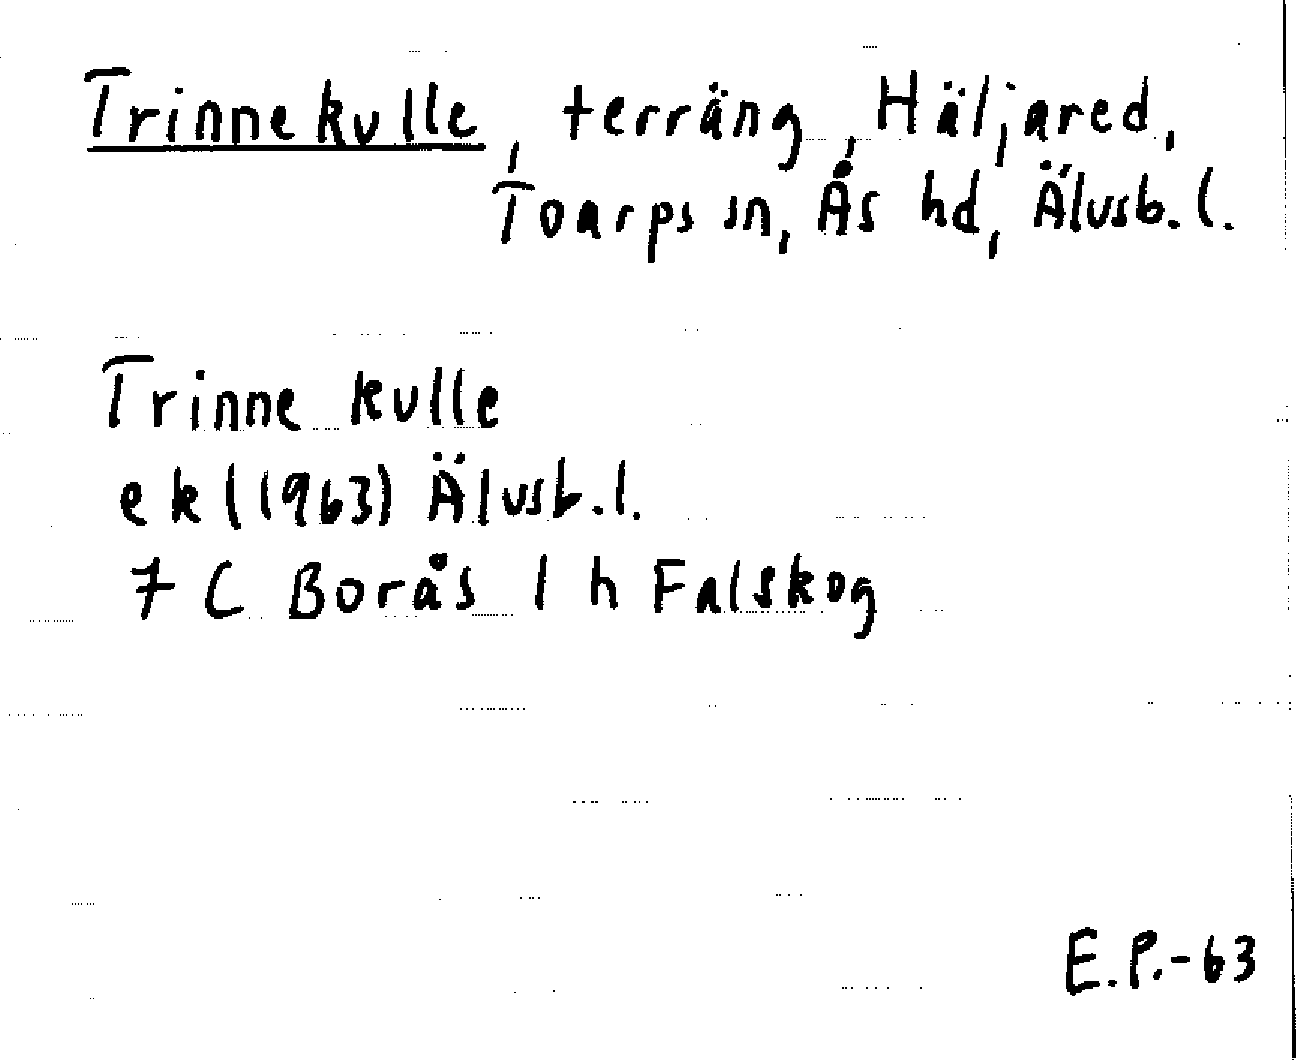 Trinnekulle, terräng, Häljared,
Toarps sn, Ås hd, Älvsb. l.
Trinne kulle
ekl (1963) Älvsb. l.
7 C Borås 1 h Falskog
E.P.-63